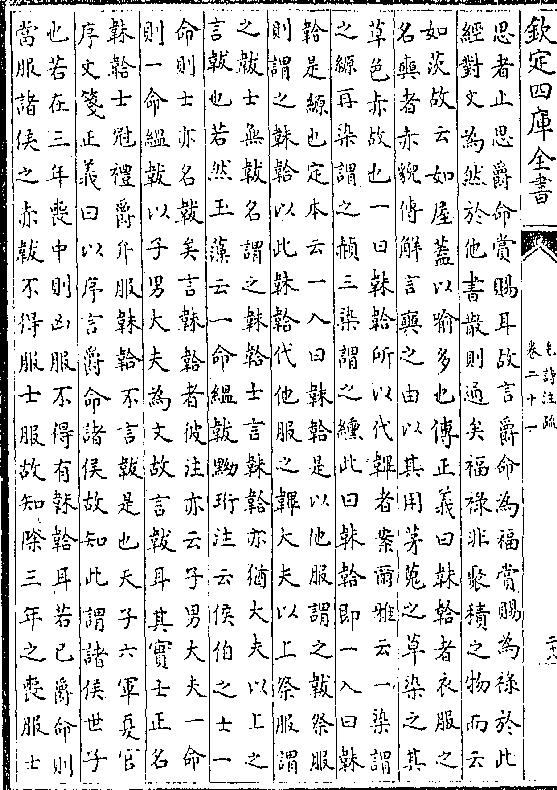 欽定四庫全書
毛詩注疏
卷二十一
思者止思爵命賞賜耳故言爵命為福賞賜為祿於此
經對文為然於他書散則通矣福祿非聚積之物而云
如茨故云如屋蓋以喻多也傳正義曰韎韐者衣服之
名奭者赤貌傳解言奭之由以其用茅蒐之草染之其
草色赤故也一曰韎韐所以代韠者案爾雅云一染謂
之縓再染謂之赬三染謂之纁此曰韎韐即一入曰韎
韐是縓也定本云一入曰韎韐是以他服謂之韍祭服
則謂之韎韐以此韎韐代他服之韠大夫以上祭服謂
之韍士無韍名謂之韎韐士言韎韐亦猶大夫以上之
言韍也若然玉藻云一命縕韍黝珩注云侯伯之士一
命則士亦名韍矣言韎韐者彼注亦云子男大夫一命
則一命縕韍以子男大夫為文故言韍耳其實士正名
韎韐士冠禮爵弁服韎韐不言韍是也天子六軍夏官
序文箋正義曰以序言爵命諸侯故知此謂諸侯世子
也若在三年喪中則凶服不得有韎韐耳若已爵命則
當服諸侯之赤韍不得服士服故知除三年之喪服士